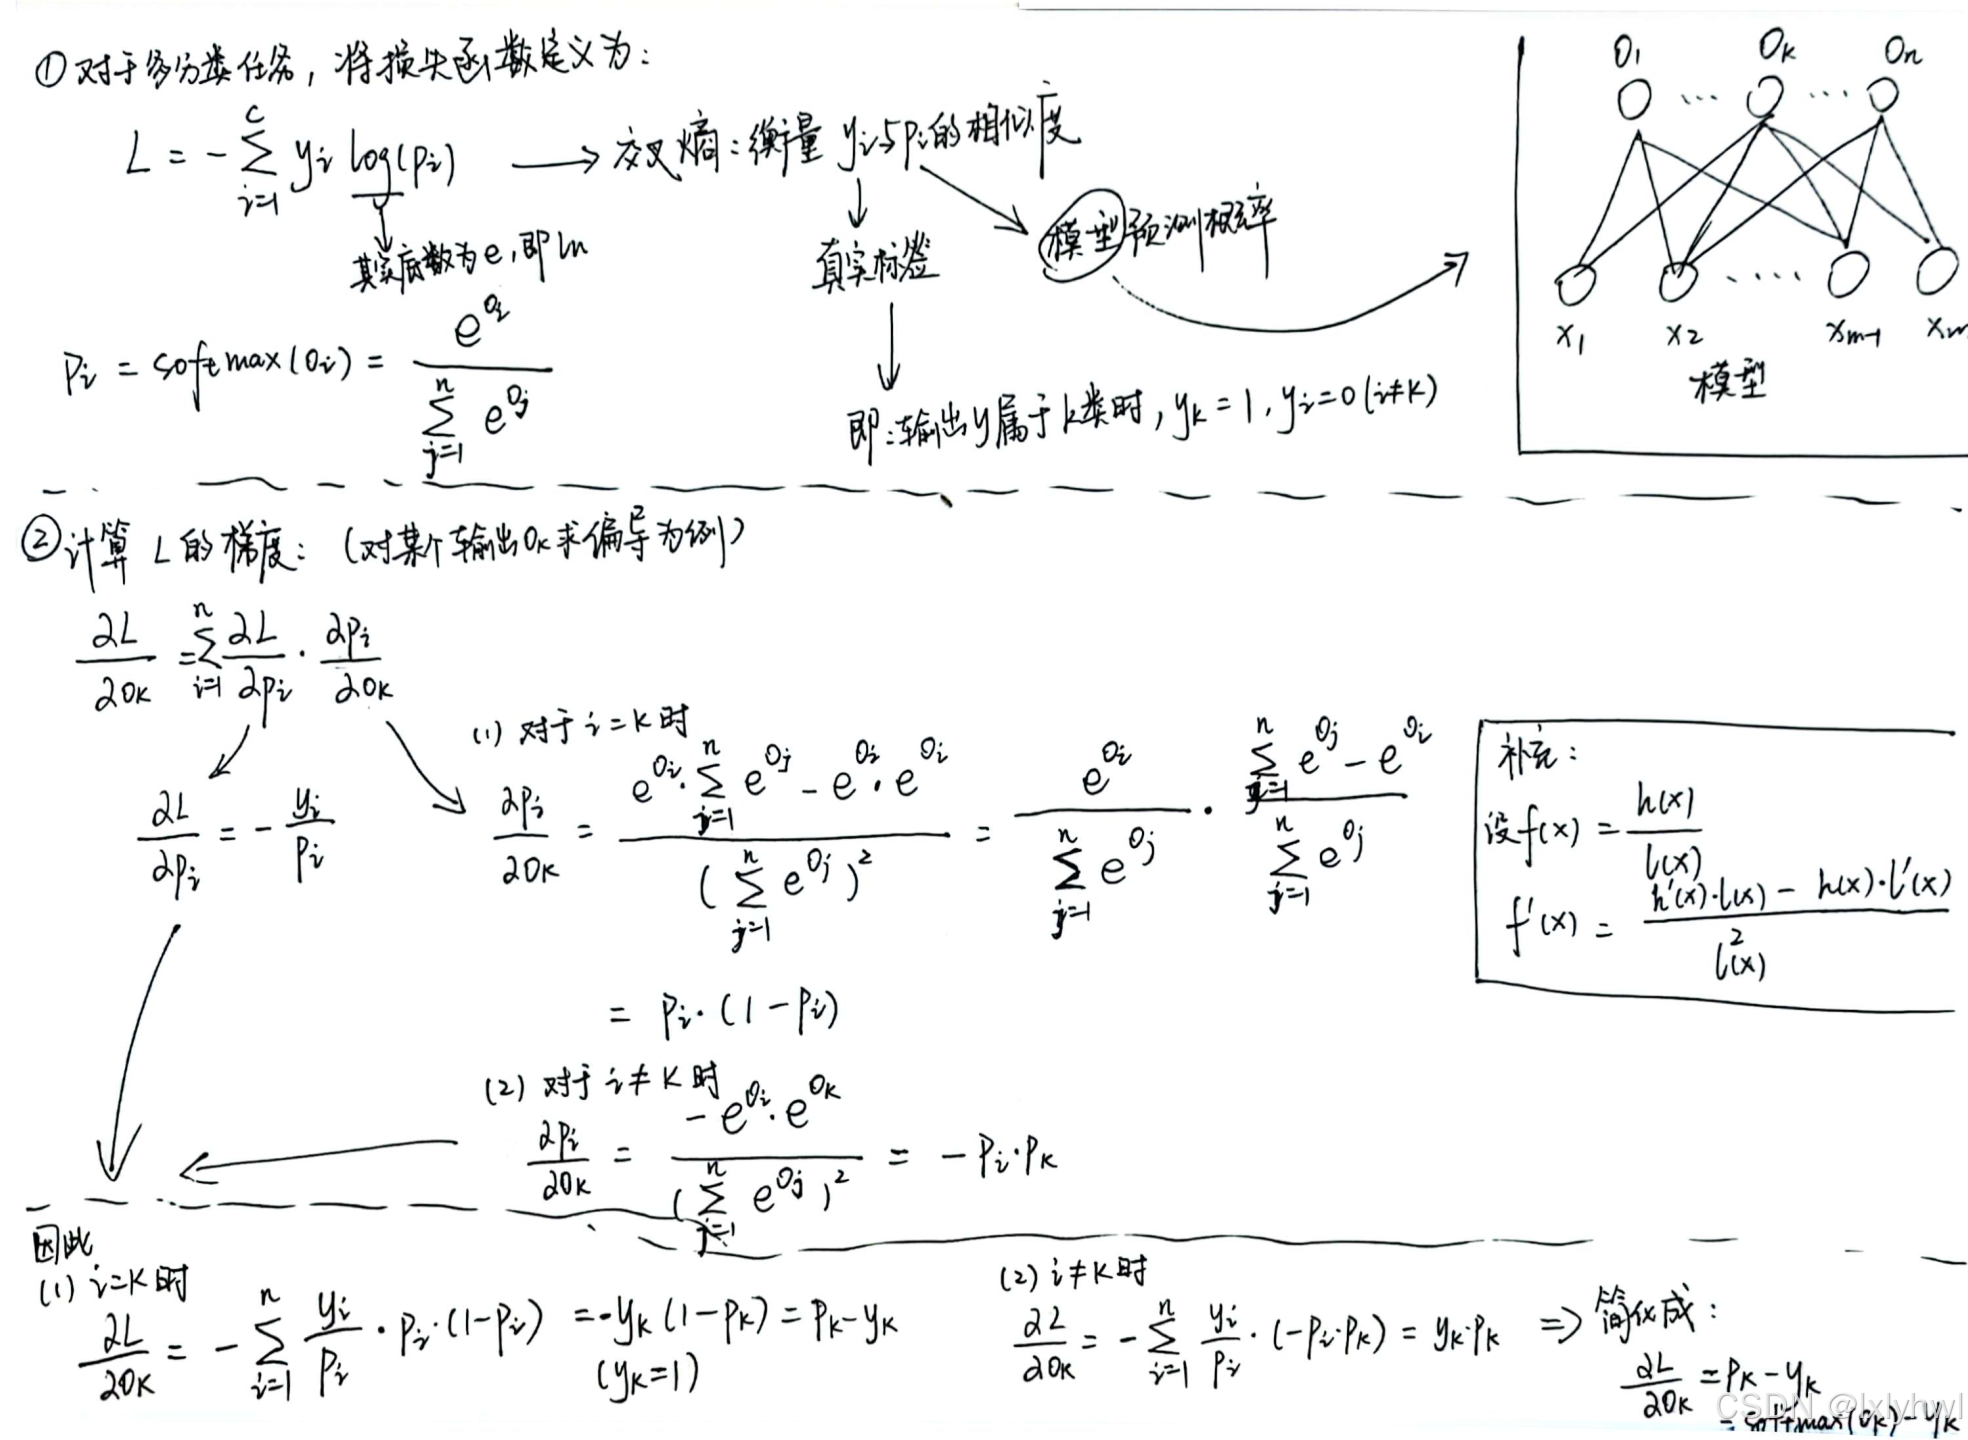 ①对于多分类任务，将损失函数定义为：
L = - ∑_{i=1}^{C} y_i log(p_i) → 交叉熵：衡量 y_i与p_i的相似度
其实底数为e，即ln
真实标签
模型预测概率
p_i = softmax(o_i) = e^{o_i} / ∑_{j=1}^{n} e^{o_j}
即：输出y属于k类时，y_k = 1，y_i = 0 (i≠k)
O_1 ... O_k ... O_n
x_1 x_2 .... x_{m-1} x_m
模型
②计算 L 的梯度：（对某个输出O_k求偏导为例）
∂L/∂O_k = ∑_{i=1}^{n} ∂L/∂p_i · ∂p_i/∂O_k
∂L/∂p_i = - y_i/p_i
(1) 对于 i = k 时
∂p_i/∂O_k = (e^{O_i} · ∑_{j=1}^{n} e^{O_j} - e^{O_i} · e^{O_i}) / (∑_{j=1}^{n} e^{O_j})^2 = e^{O_i} / ∑_{j=1}^{n} e^{O_j} · (∑_{j=1}^{n} e^{O_j} - e^{O_i}) / ∑_{j=1}^{n} e^{O_j}
= p_i · (1 - p_i)
补充：
设f(x) = h(x)/l(x)
f'(x) = (h'(x)·l(x) - h(x)·l'(x)) / l^2(x)
(2) 对于 i ≠ k 时
∂p_i/∂O_k = -e^{O_i} · e^{O_k} / (∑_{j=1}^{n} e^{O_j})^2 = - p_i · p_k
因此
(1) i = k 时
∂L/∂O_k = - ∑_{i=1}^{n} y_i/p_i · p_i · (1 - p_i) = -y_k (1 - p_k) = p_k - y_k
(y_k = 1)
(2) i ≠ k 时
∂L/∂O_k = - ∑_{i=1}^{n} y_i/p_i · (-p_i · p_k) = y_k · p_k ⇒ 简化成：
∂L/∂O_k = p_k - y_k
= softmax(O_k) - y_k
CSDN @lxlyhwl